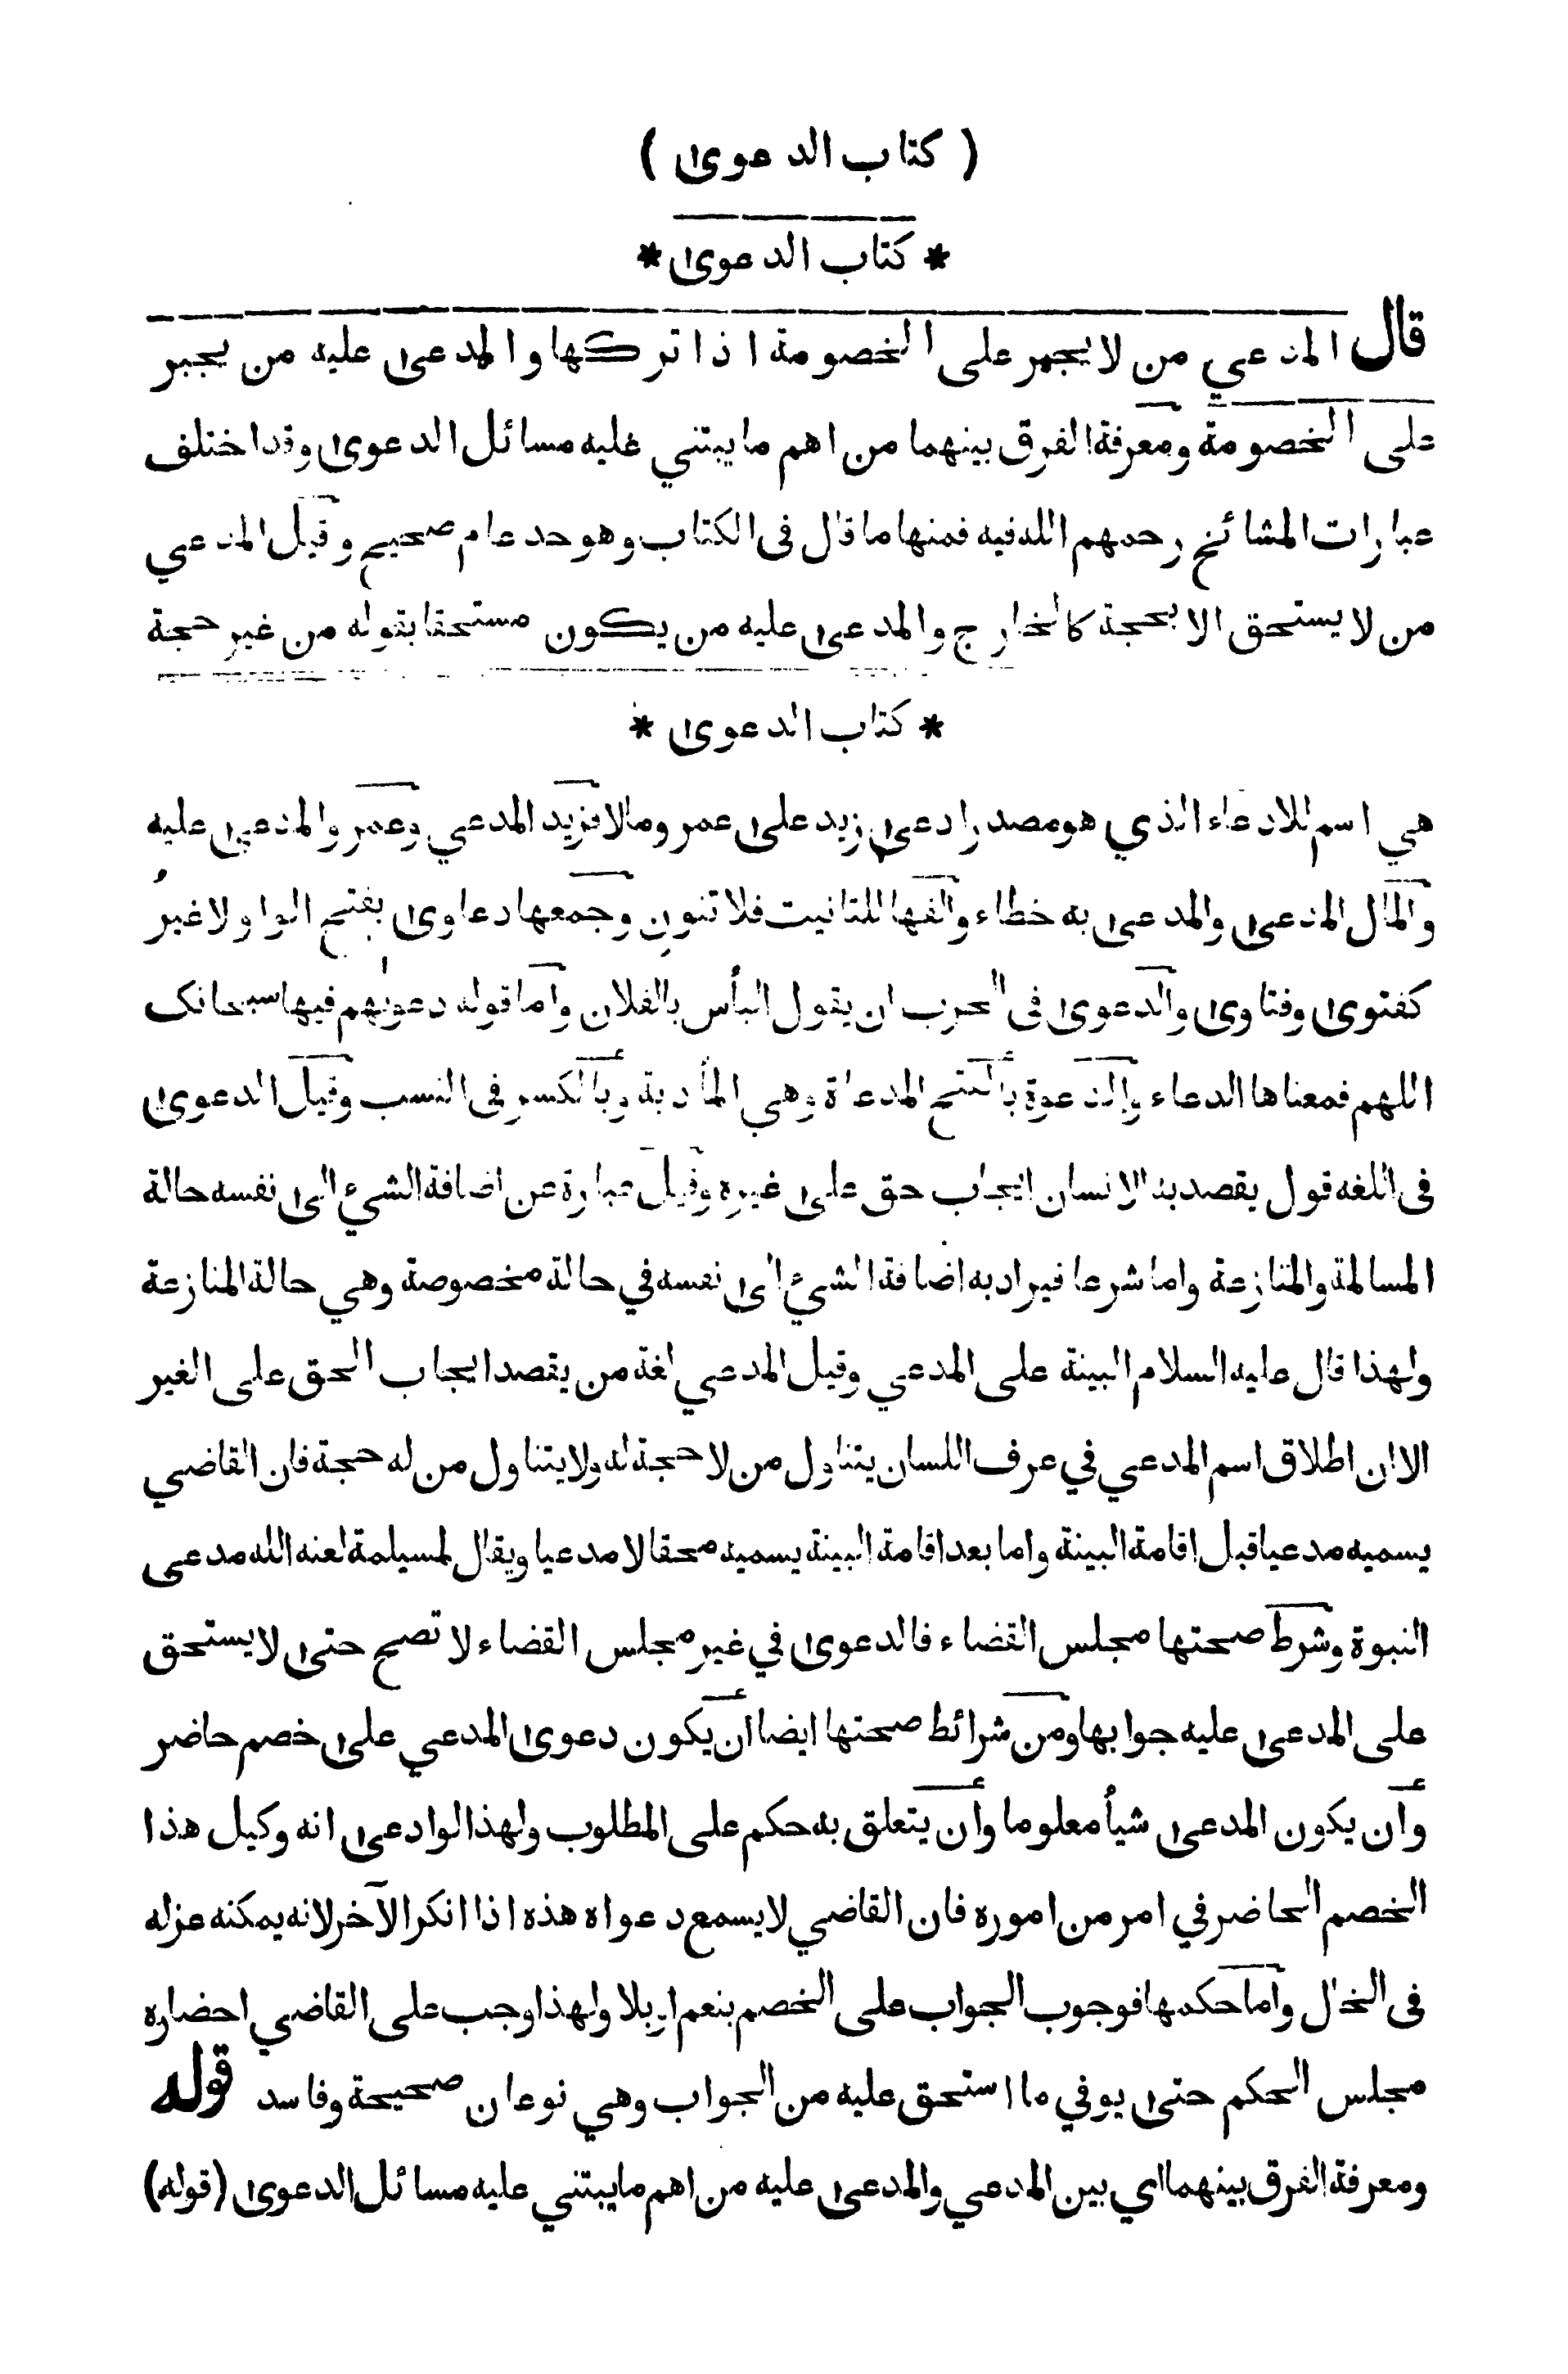 ( كتاب الدعوى )
* كتاب الدعوى *
قال المدعي من لا يجبر على الخصومة اذا تركها والمدعى عليه من يجبر
على الخصومة ومعرفة الفرق بينهما من اهم ما يبتني عليه مسائل الدعوى وقد اختلف
عبارات المشائخ رحمهم الله فيه فمنها ما قال فى الكتاب وهو حد عام صحيح وقيل المدعي
من لا يستحق الا بحجة كالخارج والمدعى عليه من يكون مستحقا بقوله من غير حجة
* كتاب الدعوى *
هي اسم للادعاء الذي هو مصدر ادعى زيد على عمر ومالا فزيد المدعي وعمر والمدعى عليه
والمال المدعى والمدعى به خطاء والفها للتانيث فلا تنون وجمعها دعاوى بفتح الواو لا غيرُ
كفتوى وفتاوى والدعوى فى الحرب ان يقول الناس بالفلان واما قوله دعوىٰهم فيها سبحانك
اللهم فمعناها الدعاء والدعوة بالفتح المدعاة وهي المأدبة وبالكسر فى النسب وقيل الدعوى
فى اللغه قول يقصد به الانسان ايجاب حق على غيره وقيل عبارة عن اضافة الشيء الى نفسه حالة
المسالمة والمنازعة واما شرعا فيراد به اضافة الشيء الى نفسه في حالة مخصوصة وهي حالة المنازعة
ولهذا قال عليه السلام البينة على المدعي وقيل المدعي لغة من يقصد ايجاب الحق على الغير
الا ان اطلاق اسم المدعي في عرف اللسان يتناول من لا حجة له ولا يتناول من له حجة فان القاضي
يسميه مدعيا قبل اقامة البينة واما بعد اقامة البينة يسميه محقا لا مدعيا ويقال لمسيلمة لعنه الله مدعى
النبوة وشرط صحتها مجلس القضاء فالدعوى في غير مجلس القضاء لا تصح حتى لا يستحق
على المدعى عليه جوابها ومن شرائط صحتها ايضا أن يكون دعوى المدعي على خصم حاضر
وأن يكون المدعى شيأ معلوما وأن يتعلق به حكم على المطلوب ولهذا لو ادعى انه وكيل هذا
الخصم الحاضر في امر من اموره فان القاضي لا يسمع دعواه هذه اذا انكر الآخر لانه يمكنه عزله
فى الحال وأما حكمها فوجوب الجواب على الخصم بنعم او بلا ولهذا وجب على القاضي احضاره
مجلس الحكم حتى يوفي ما استحق عليه من الجواب وهي نوعان صحيحة وفاسد قوله
ومعرفة الفرق بينهما اي بين المدعي والمدعى عليه من اهم ما يبتني عليه مسائل الدعوى (قوله)